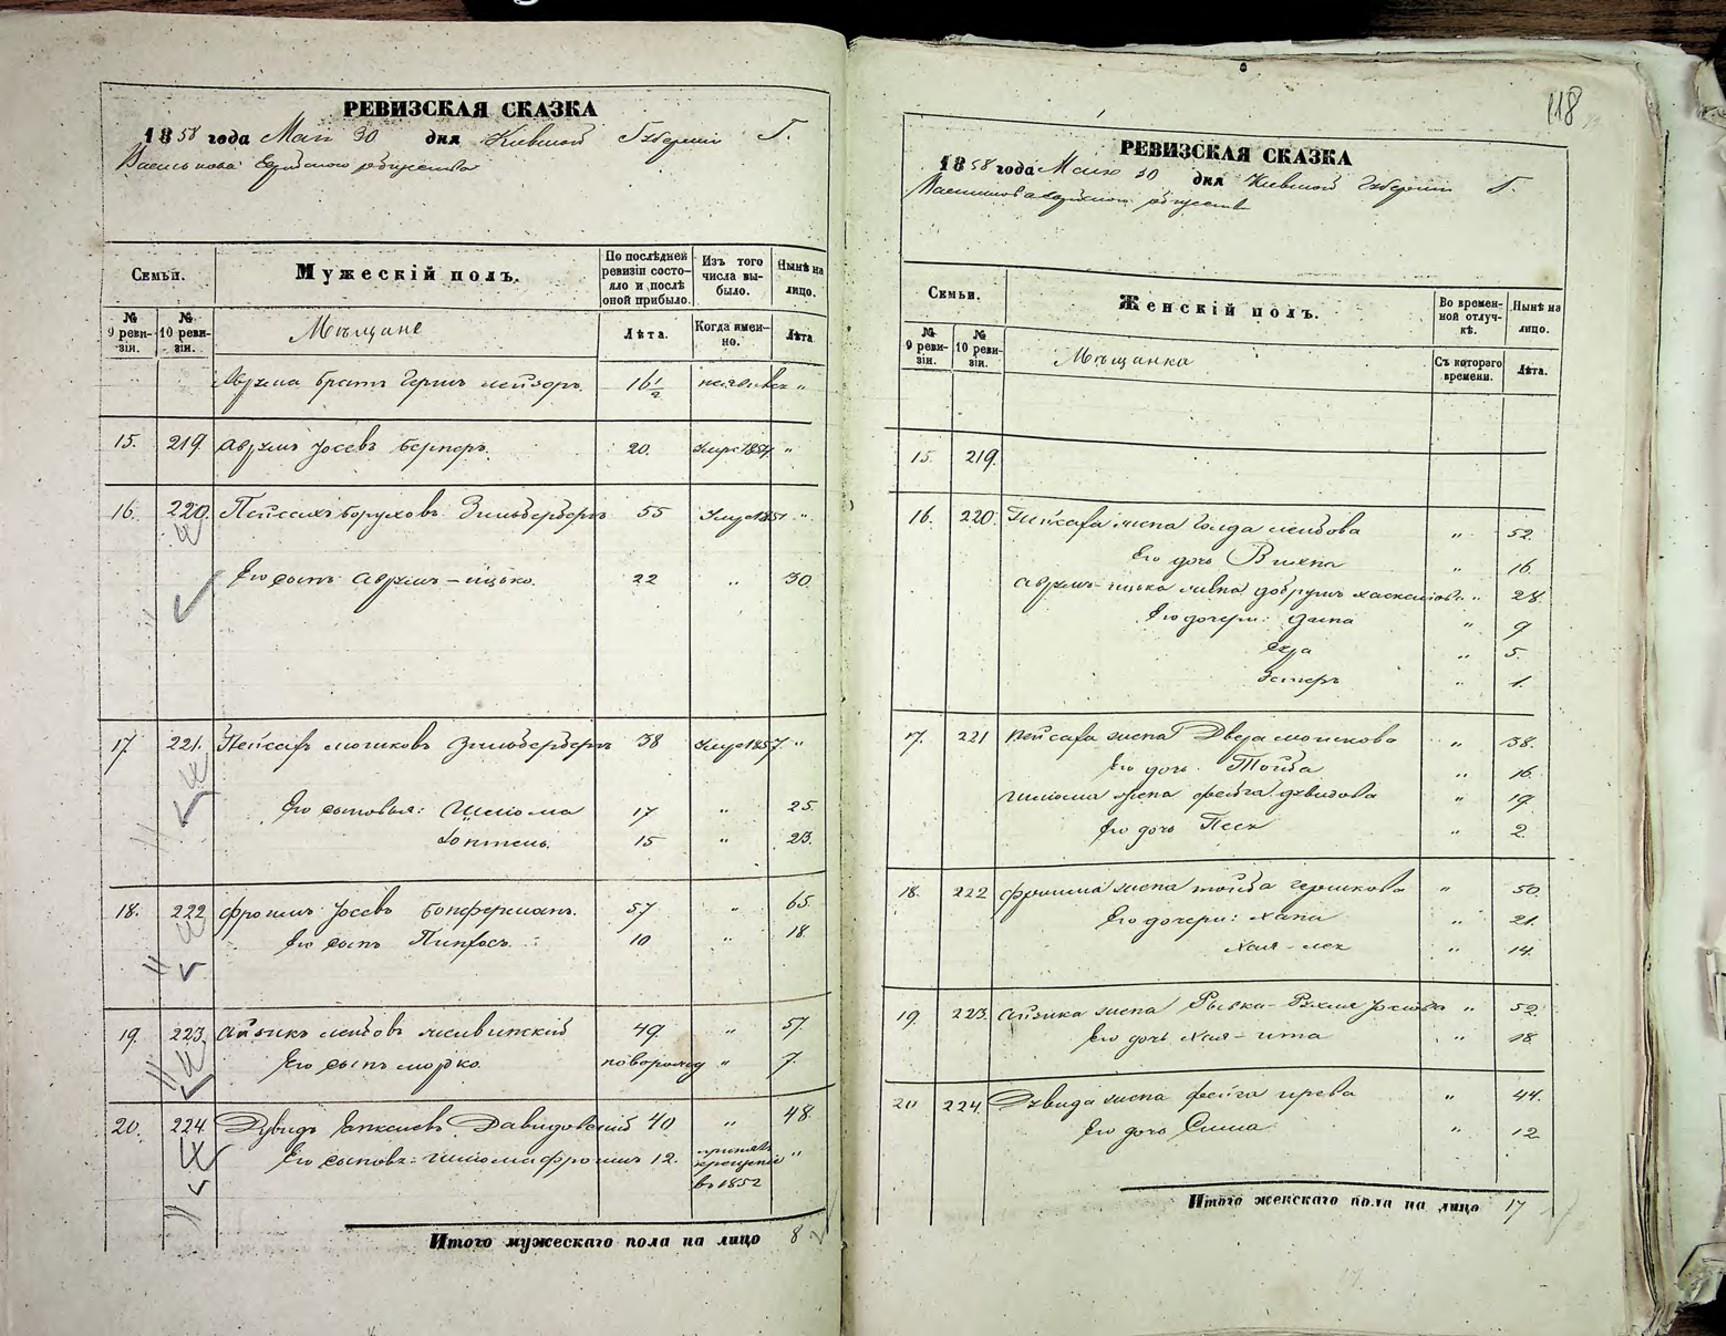 РЕВИЗСКАЯ СКАЗКА
1858 года Мая 30 дня Киевской Губерніи Г.
Василькова Еврейскаго общества
Семьи.
Мужескій полъ.
По послѣдней ревизіи состояло и послѣ оной прибыло.
Изъ того числа выбыло.
Нынѣ на лицо.
№ 9 ревизіи.
№ 10 ревизіи.
Мѣщане
Лѣта.
Когда именно.
Лѣта
братъ Гершъ Лейзоръ. 16½ "
15. 219. Аврумъ Іосевъ 20. 1854 "
16. 220. Пейсахъ Боруховъ Зильберберъ 55 1851 "
Его сынъ Аврумъ-Ицько. 22 " 30.
17 221. Пейсахъ Мошковъ Зильберберъ 38 1857 "
Его сыновья: Шліома 17 " 25
15 " 23.
18. 222 Фроимъ Іосевъ 57 " 65.
Его сынъ Пинхосъ. 10 " 18.
19. 223. Айзикъ Лейбовъ 49. " 57.
Его сынъ Мордко. новорожд " 7.
20. 224. Дувидъ Давидовскій 40. " 48.
Его сыновъ: Шліома Фроимъ 12. принялъ крещеніе в 1852 "
Итого мужескаго пола на лицо 8
118
РЕВИЗСКАЯ СКАЗКА
1858 года Мая 30 дня Киевской Губерніи Г.
Василькова Еврейскаго общества
Семьи.
Женскій полъ.
Во временной отлучкѣ.
Нынѣ на лицо.
№ 9 ревизіи.
№ 10 ревизіи.
Мѣщанка
Съ котораго времени.
Лѣта.
15. 219.
16. 220. Пейсаха жена Голда Лейбова " 52.
Его дочь Вихна " 16.
Аврумъ-Ицька жена Добрушъ " 28.
Его дочери: " 9
" 5.
Эстеръ " 1.
17. 221 Пейсаха жена Двера Мошкова " 38.
Его дочь Тойба " 16.
Шліома жена Фейга Дувидова " 19
Его дочь Песя " 2.
18. 222 Фроима жена Тойба Гершкова " 50.
Его дочери: Хана " 21.
Хая-Лея " 14.
19. 223. Айзика жена Рывка-Рухля " 52.
Его дочь Хая-Ита " 18.
20 224. Дувида жена Фейга " 44.
Его дочь Сима " 12.
Итого женскаго пола на лицо 17